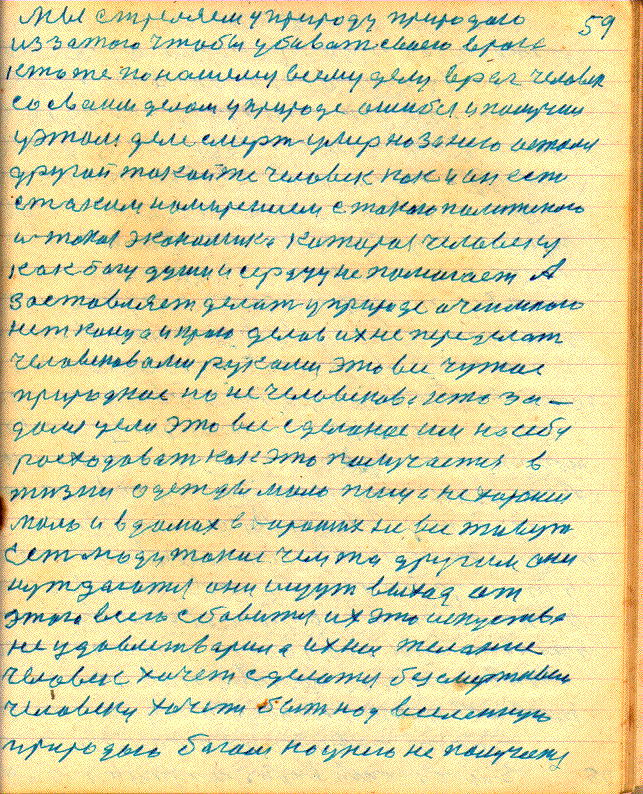 59
мы стреляем у природу природого
из затого чтобы убиват своего врага
кто же по нашему всему делу враг человек
со своим делом у природе ошибся и получил
у этом деле смерт умер но за него остался
другой такой же человек как и он ест
с таким намерением с такого политикого
и такая экономика которая человеку
как богу души и сердцу не помогает А
заставляет делат у природе а чем много
нет конца и краю делов их не переделат
человековами руками это все чужое
природное но не человеково кто за—
дался цели это все сделаное им на себя
росходоват как это получается в
жизни одежды мало пища не хороша
мало и в домах в хороших не все живут
Ест люди такие чем та другим они
нуждаются они ищут выход от
этого всего сбавится их это искуство
не удовлетварила ихнее желание
человек хочет сделатся безсмертным
человеку хочется быт над вселенную
природого богом но у него не получаеця